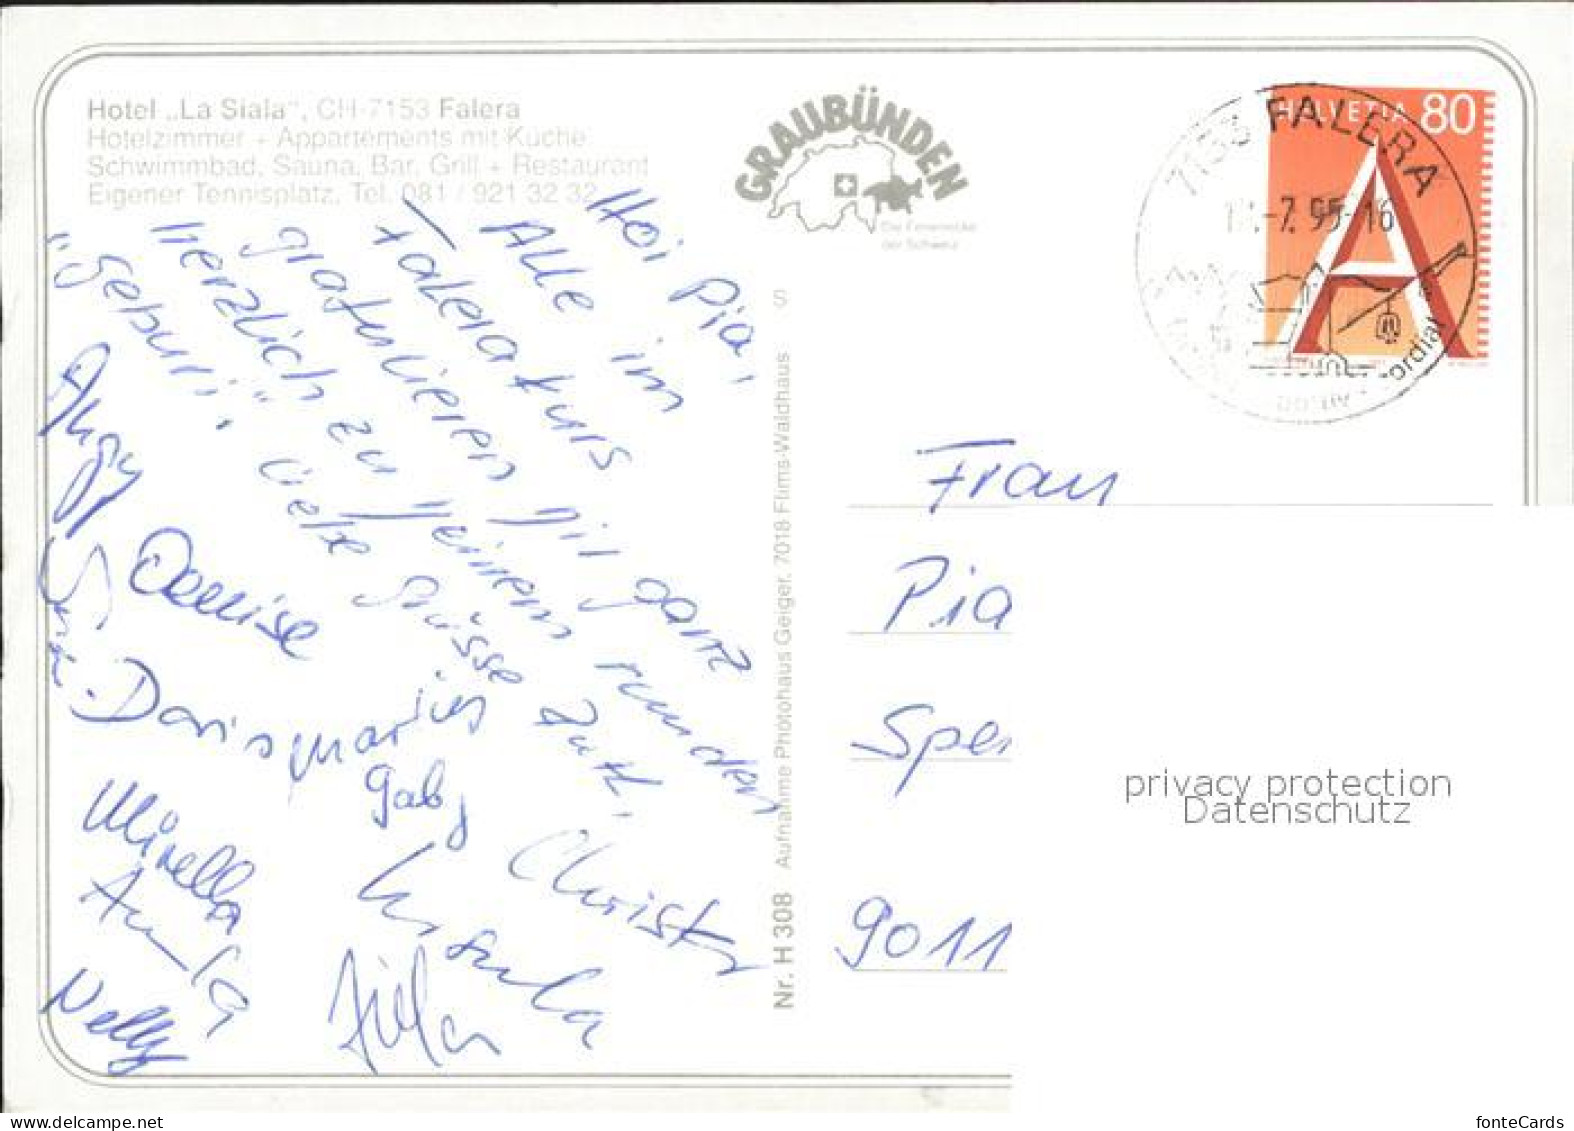 Hotel „La Siala", CH-7153 Falera
Hotelzimmer + Appartements mit Küche
Schwimmbad, Sauna, Bar, Grill + Restaurant
Eigener Tennisplatz, Tel. 081 / 921 32 32
GRAUBÜNDEN
Die Ferienecke
der Schweiz
HELVETIA 80
A
7153 FALERA
-7.95-16
Hoi Pia,
Alle im
Falerakurs
gratulieren Dir ganz
herzlich zu Deinem runden
"Geburi". Liebe Grüsse Ruth,
Angy
Denise
Doris
Marius
Gaby
Christa
Mirella
Ursula
Nelly
S
Nr. H 308 Aufnahme Photohaus Geiger, 7018 Flims-Waldhaus
Frau
Pia
9011
privacy protection
Datenschutz
www.delcampe.net
fonteCards